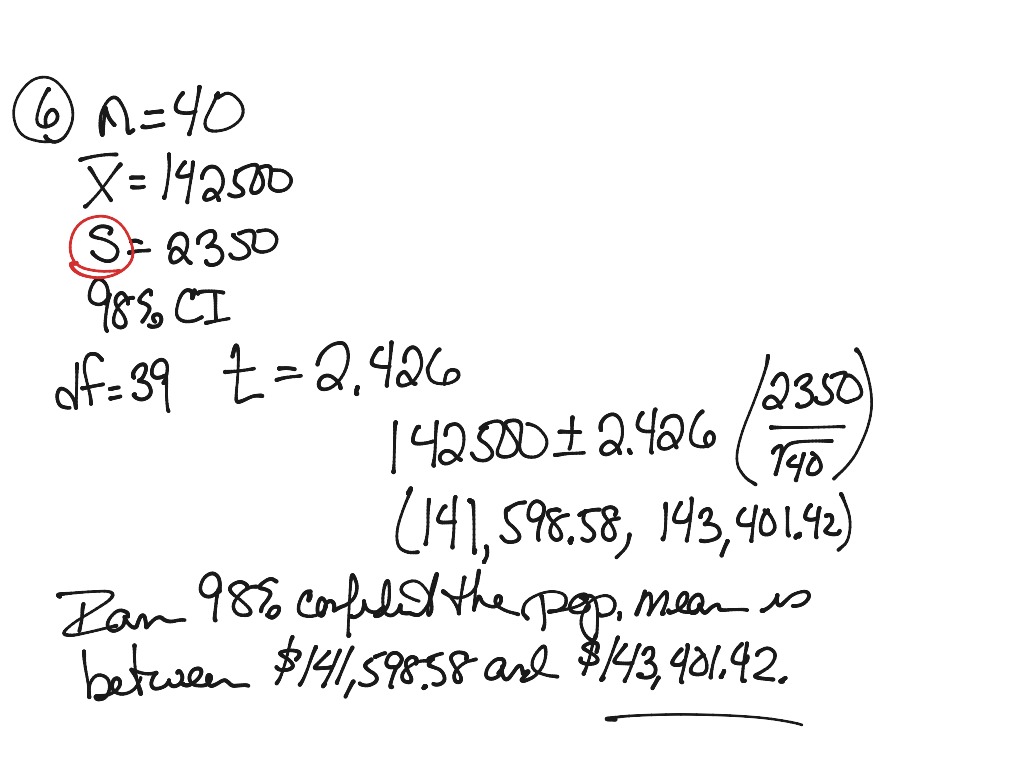 6 n=40
X̄ = 142500
S = 2350
98% CI
df=39 t = 2.426
142500 ± 2.426 (2350/√40)
(141,598.58, 143,401.42)
I am 98% confident the pop. mean is
between $141,598.58 and $143,401.42.